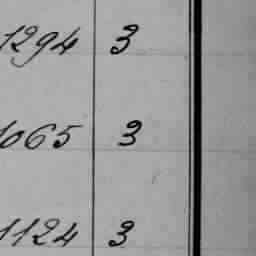 1294 3
1065 3
1124 3